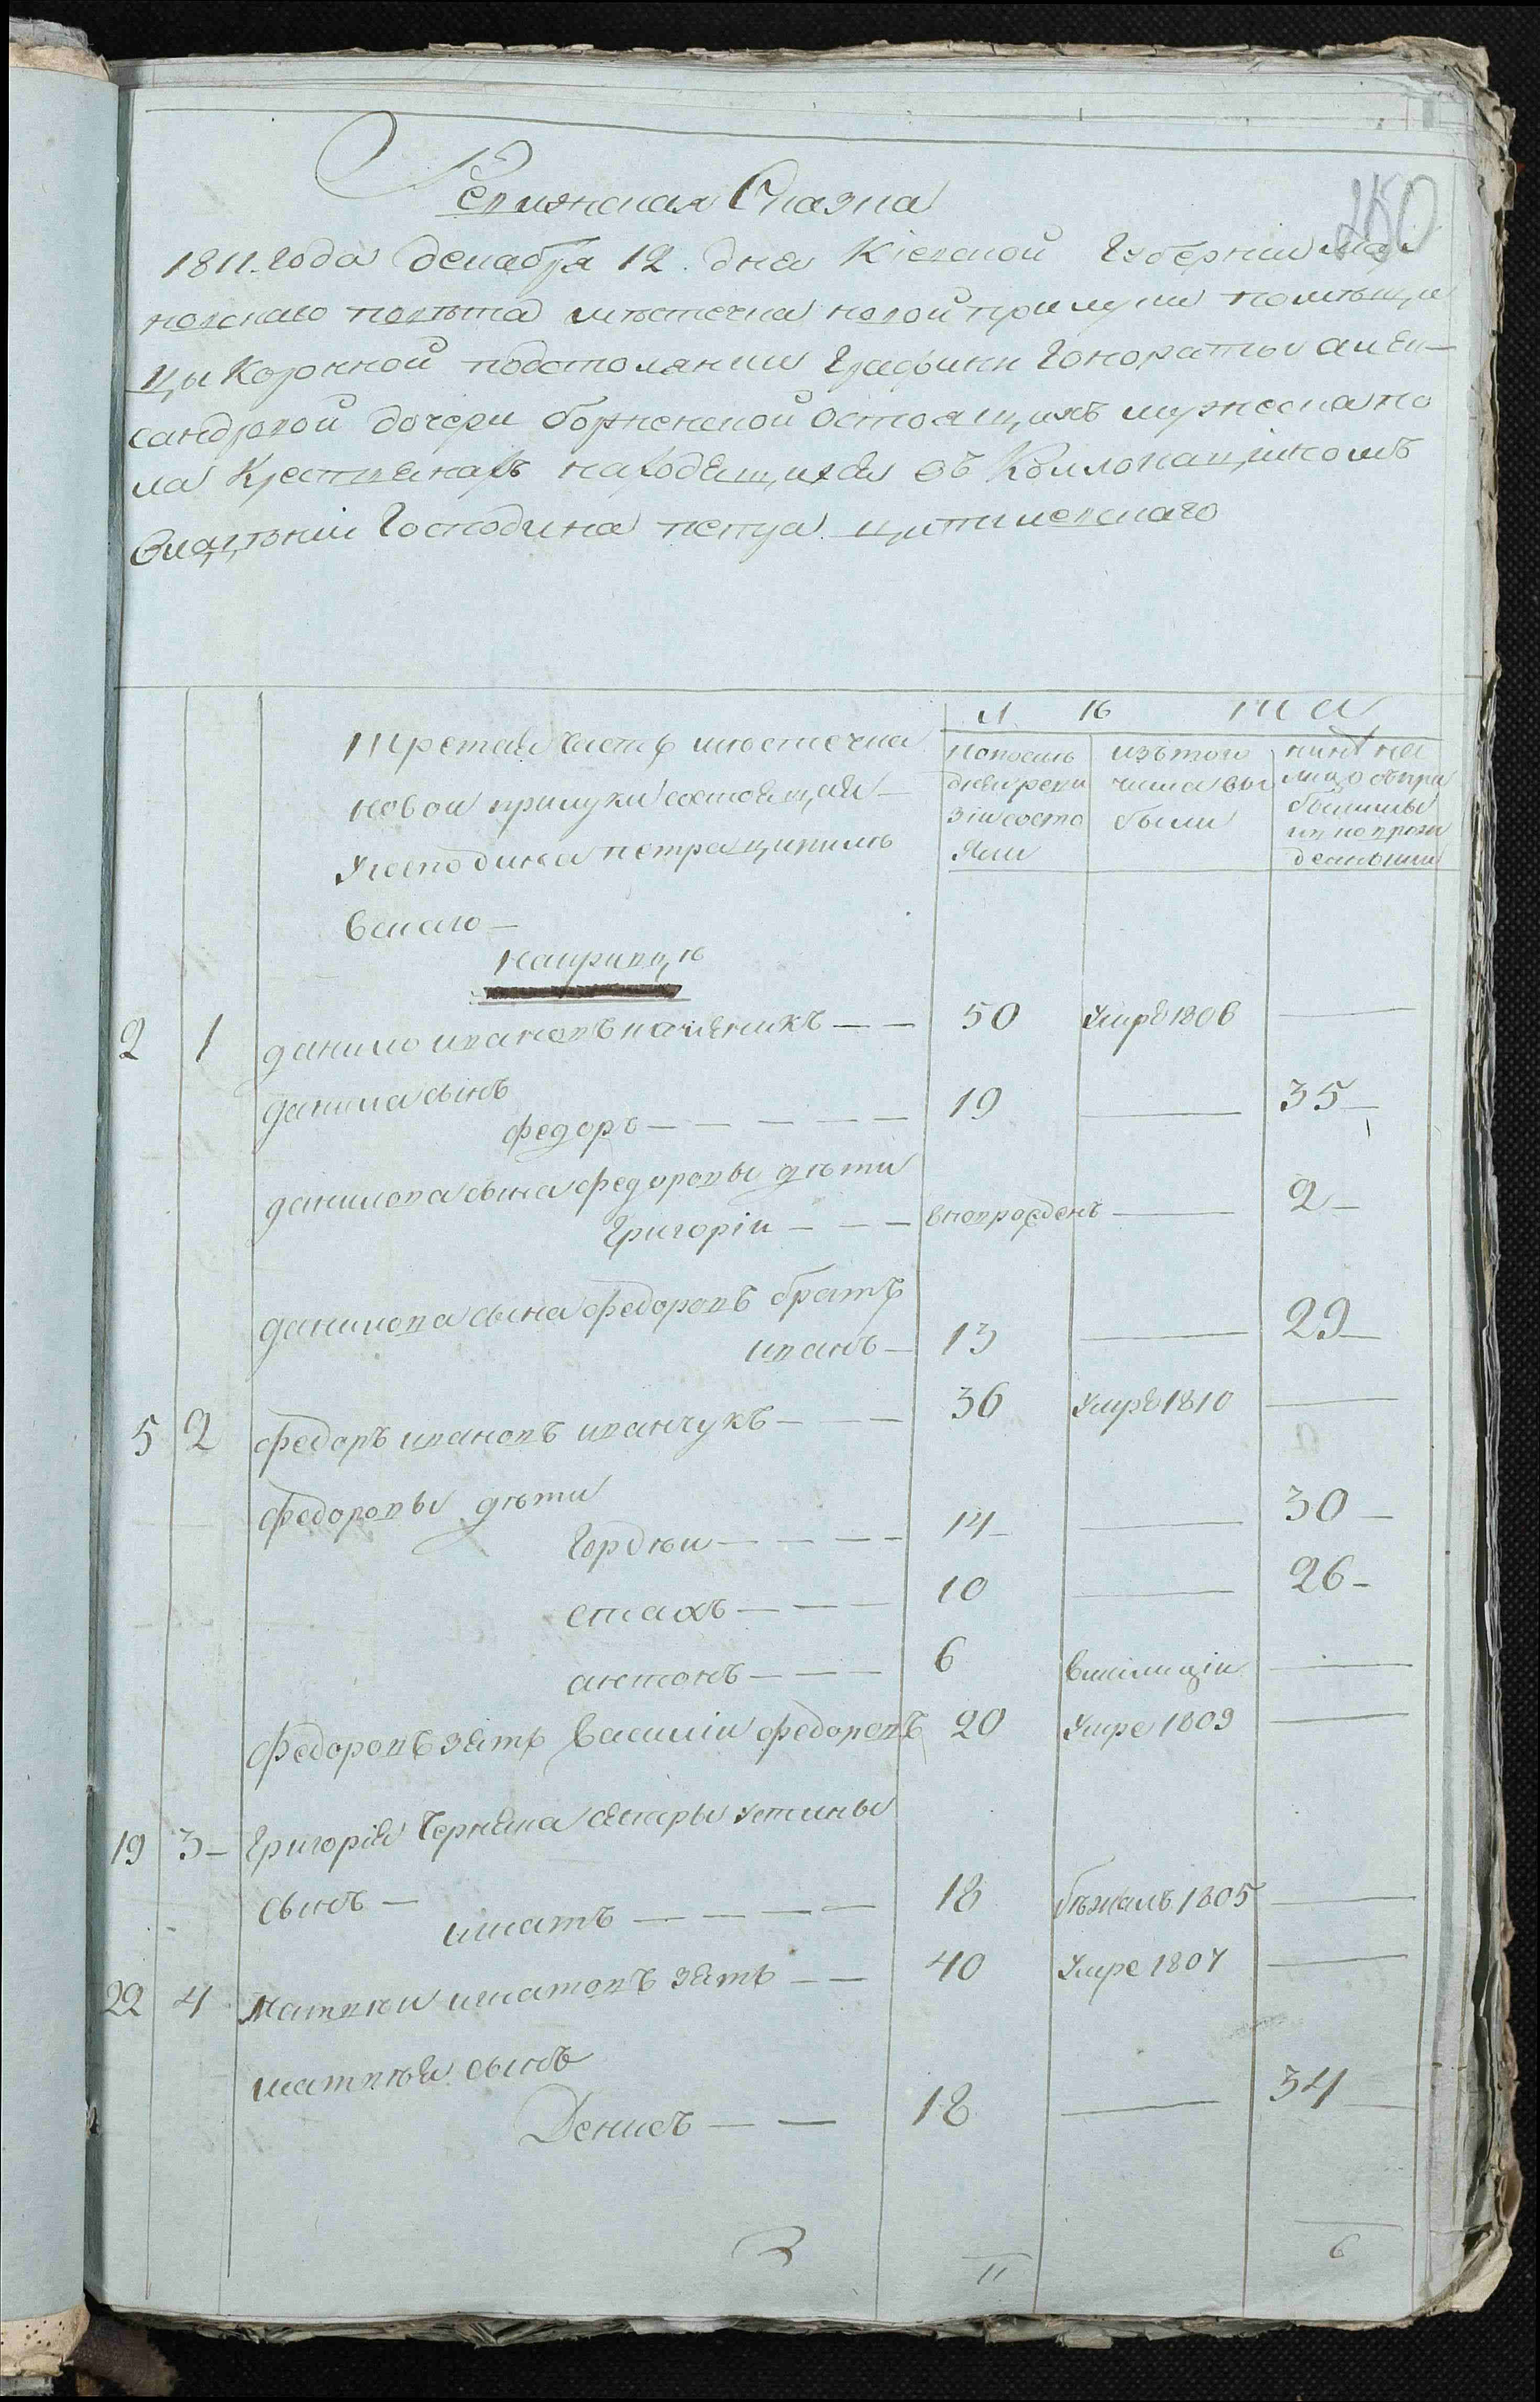 Ревижская Сказка
250
1811. года декабря 12. дня Кіевской Губерніи Мах
новскаго повѣта мѣстечка новой прилуки помѣщи
цы Коронной подстолянки Графини Гонораты алек—
сандровой дочери борженской Остоящихъ мужеска по
ла Крестьянахъ находящихся въ Коллокацiйномъ
владѣніи Господина петра
Третая Часть мѣстечка
новои прилуки состоящая—
У господина петра ципилѣ
вскаго—
Л ѣ т а
на послѣ
дней реви
зіи состо
яли
изъ того
числа вы
были
нинѣ на
лицо съпри
былимы
2 1 данило ивановъ — — 50 Умре 1806 —
данила сынъ
федоръ — — — — — 19 — 35—
данилова сына федоровы дѣти
Григоріи — — — вновророжденъ — 2—
данилова сына федоровъ братъ
иванъ— 13 — 29—
5 2 федоръ ивановъ иванчукъ — — 36 Умре 1810 —
федоровы дѣти
Гордѣи — — — — 14 — 30—
стахъ — — — 10 — 26—
антонъ — — — 6 вмилиціи —
федоровъ зять Василіи федоровъ 20 Умре 1809 —
19 3— Григорія Черняка сестры устины
сынъ—
игнатъ — — — — 18 бѣжалъ 1805 —
22 4 Матвѣи игнатовъ зять — — 40 Умре 1807 —
матвѣя сынъ
Денисъ — — 18 — 34
11
6